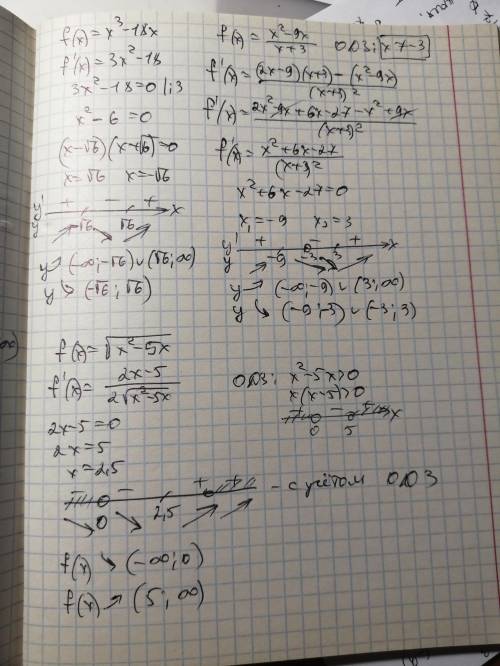 f(x)=x³-18x
f'(x)=3x²-18
3x²-18=0 |:3
x²-6=0
(x-√6)(x+√6)=0
x=√6 x=-√6
y' + - + x
y -√6 √6
y ↗ (-∞;-√6)∪(√6;∞)
y ↘ (-√6;√6)
f(x)= x²-9x / x+3 ОДЗ: x≠-3
f'(x)= (2x-9)(x+3)-(x²-9x) / (x+3)²
f'(x)= 2x²-9x+6x-27-x²+9x / (x+3)²
f'(x)= x²+6x-27 / (x+3)²
x²+6x-27=0
x₁=-9 x₂=3
y' + - + x
y -9 -3 3
y ↗ (-∞;-9)∪(3;∞)
y ↘ (-9;-3)∪(-3;3)
f(x)=√x²-5x
f'(x)= 2x-5 / 2√x²-5x
2x-5=0
2x=5
x=2,5
ОДЗ: x²-5x>0
x(x-5)>0
+ - + x
0 5
- - + + - с учётом ОДЗ
0 2,5
f(x) ↘ (-∞;0)
f(x) ↗ (5;∞)